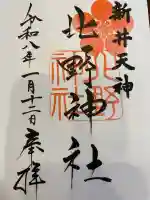 新井天神
北野神社
令和八年一月十二日奉拝